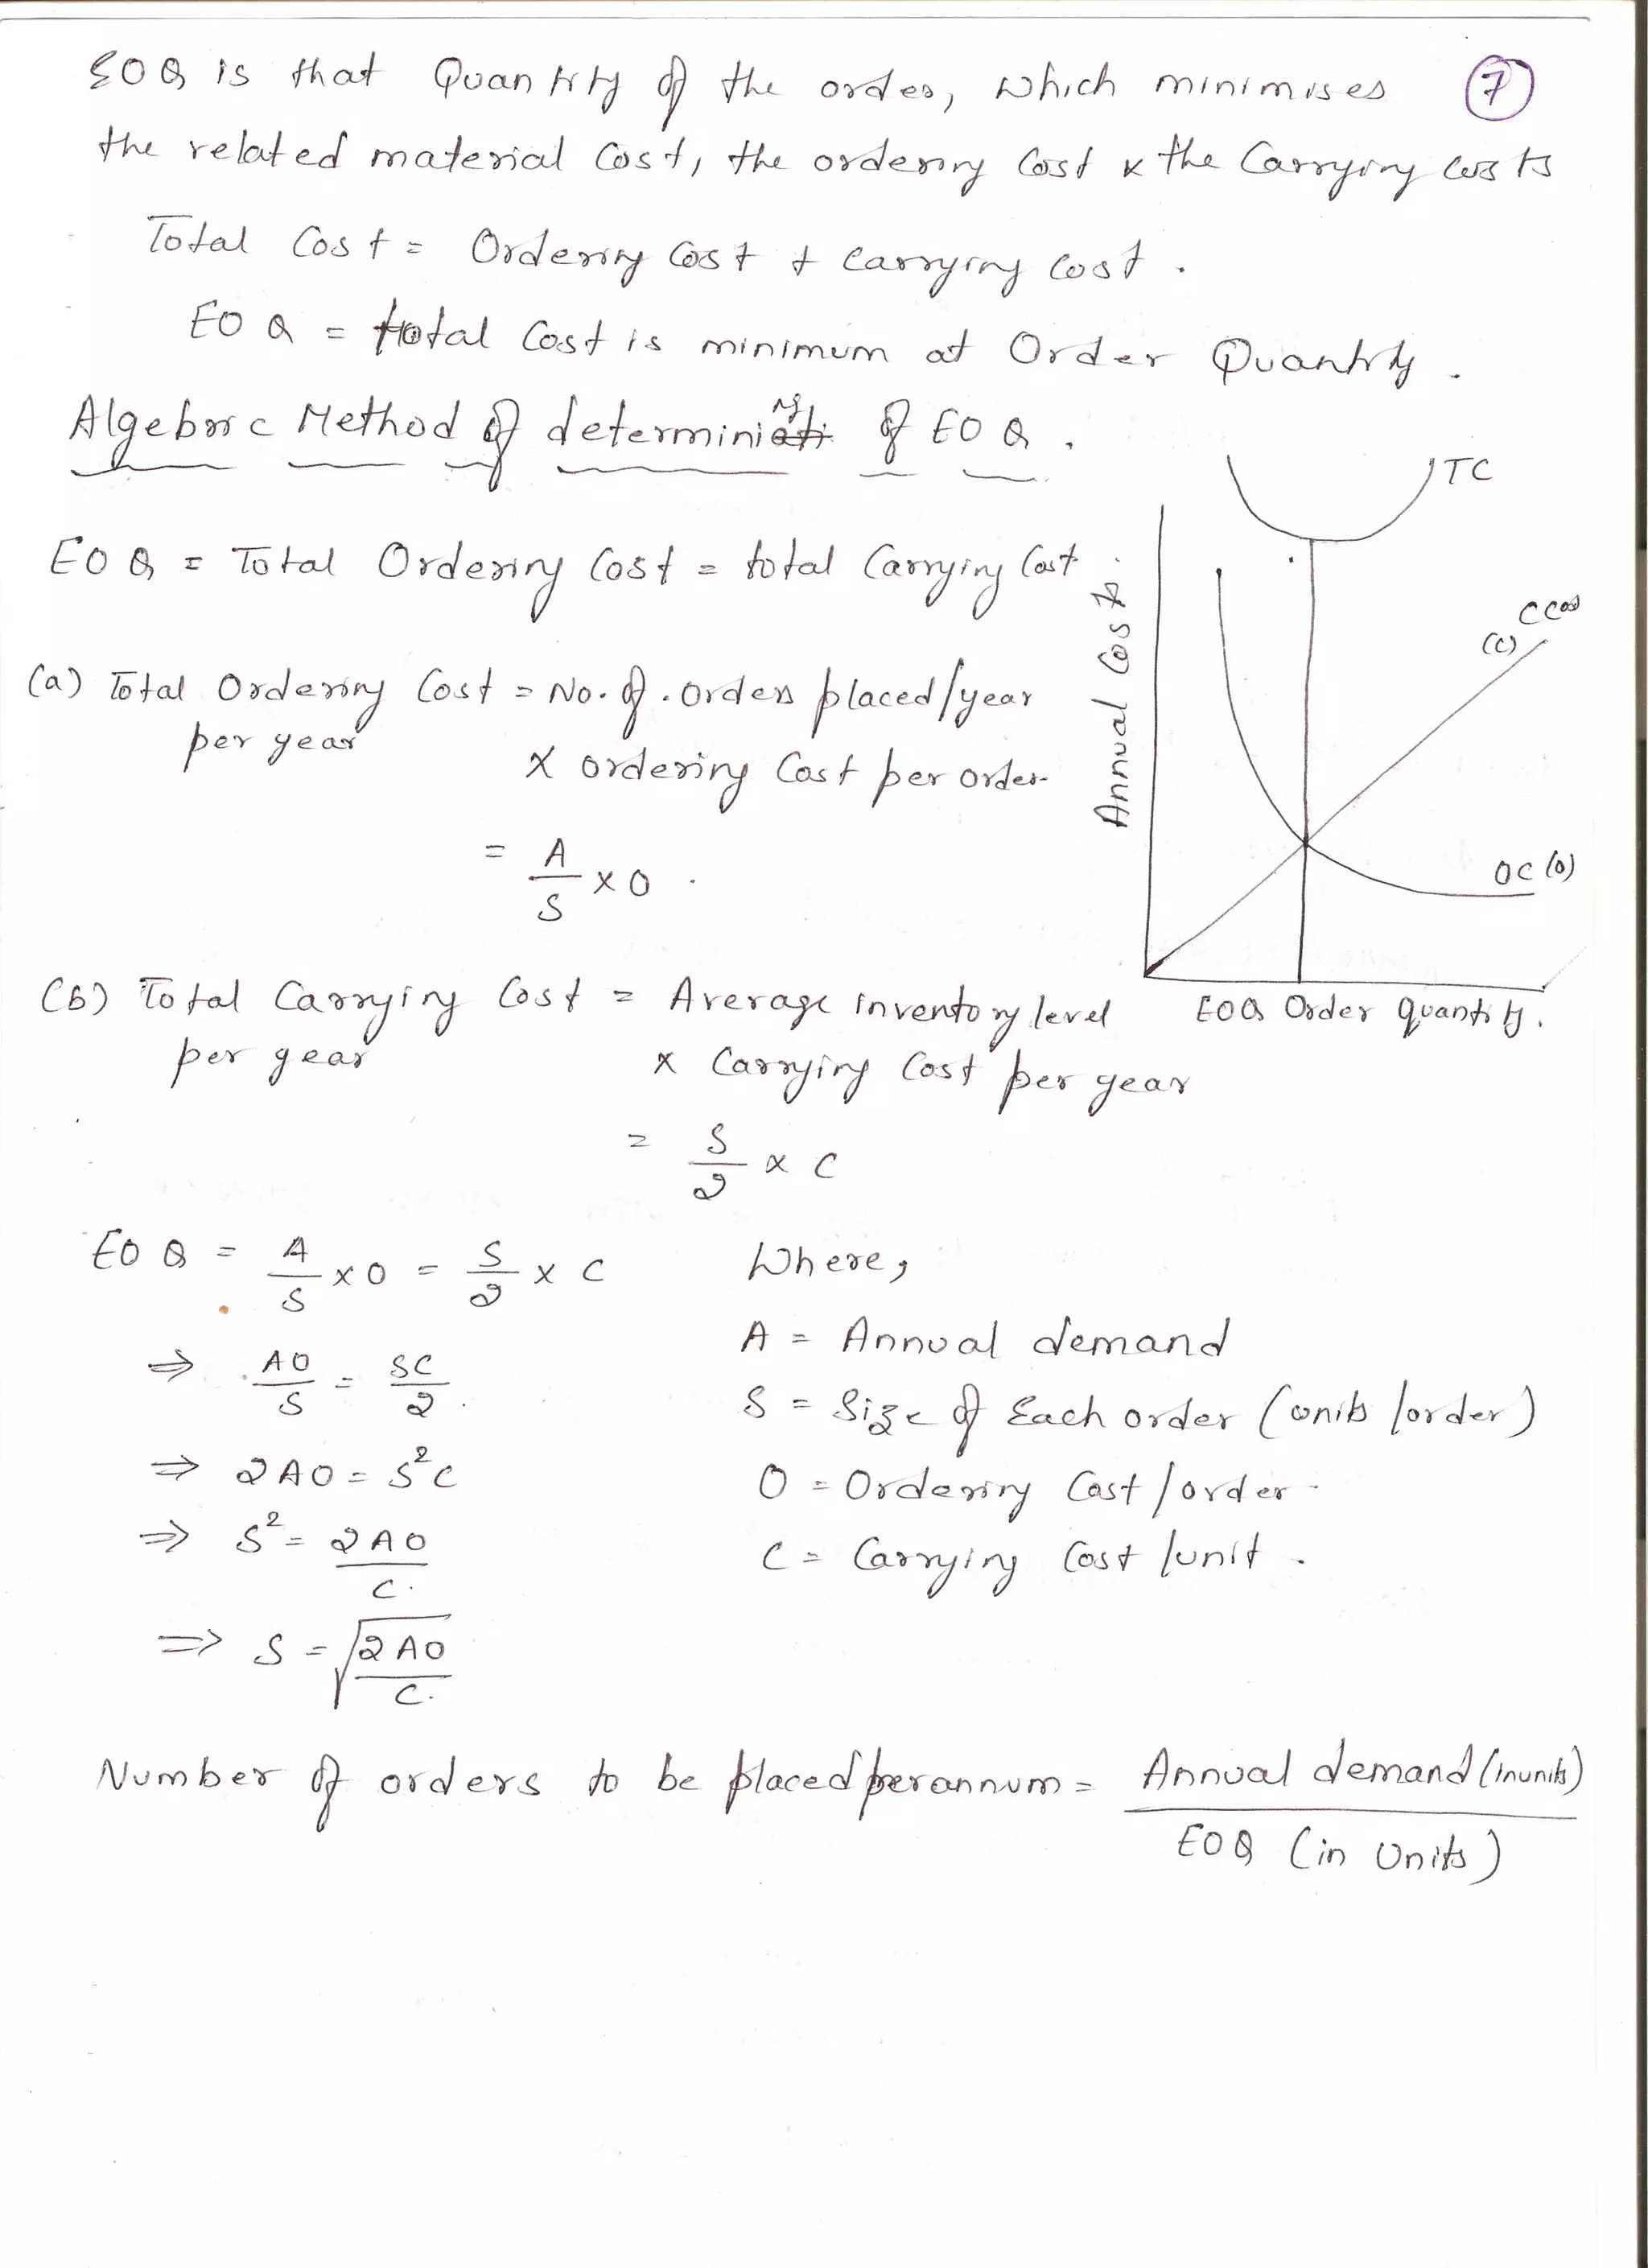 EOQ is that Quantity of the order, which minimises
7
the related material Cost, the ordering Cost & the Carrying Costs
Total Cost = Ordering Cost + Carrying Cost.
EOQ = total Cost is minimum at Order Quantity.
Algebric Method of determining of EOQ.
EOQ = Total Ordering Cost = total Carrying Cost
(a) Total Ordering Cost = No. of. orders placed/year
per year
x ordering Cost per order
= A/S x O.
TC
C Cost
(C)
OC (O)
Annual Costs
EOQ Order quantity.
(b) Total Carrying Cost = Average inventory level
per year
x Carrying Cost per year
= S/2 x C
EOQ = A/S x O = S/2 x C
⇒ AO/S = SC/2
⇒ 2AO = S²C
⇒ S² = 2AO/C.
⇒ S = √2AO/C.
Where,
A = Annual demand
S = Size of Each order (units/order)
O = Ordering Cost/order
C = Carrying Cost/unit.
Number of orders to be placed per annum = Annual demand (in units)
EOQ (in Units)